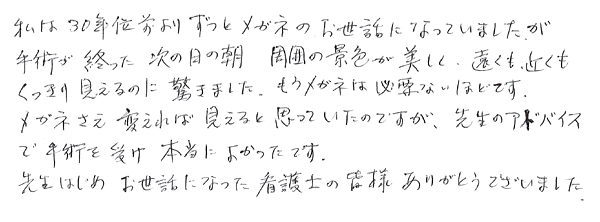 私は30年位前よりずっとメガネのお世話になっていましたが
手術が終った次の日の朝 周囲の景色が美しく、遠くも、近くも
くっきり見えるのに驚きました。もうメガネは必要ないほどです。
メガネさえ変えれば見えると思っていたのですが、先生のアドバイス
で手術を受け本当によかったです。
先生はじめお世話になった看護士の皆様ありがとうございました